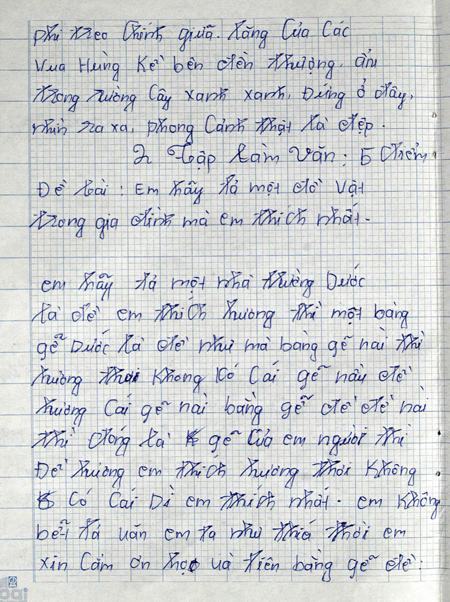 phi treo Chính giữa. Lăng Của Các
Vua Hùng Kề bên đền thượng, ẩn
trong rường Cây xanh xanh, Đứng ở đây,
nhìn ra xa, phong Cảnh thật là đẹp.
2 Tập Làm Văn: 5 điểm
Đề bài: Em hãy tả một đồ Vật
trong gia đình mà em thích nhất.
em hãy tả một nhà thường Dước
là để em thích hương thì một bàng
gế Dước là để như mà bằng gế nài thì
hương thơi Không Có Cái gế nầu để
hương Cái gế nài bằng gế để để nài
thì đóng là gế Của em người thì
Để hương em thích hương thời Không
Có Cái Dì em thích nhất. em Không
bết tả uăn em ta như thiế thời em
xin Cảm ơn học uà tiên bằng gế để: